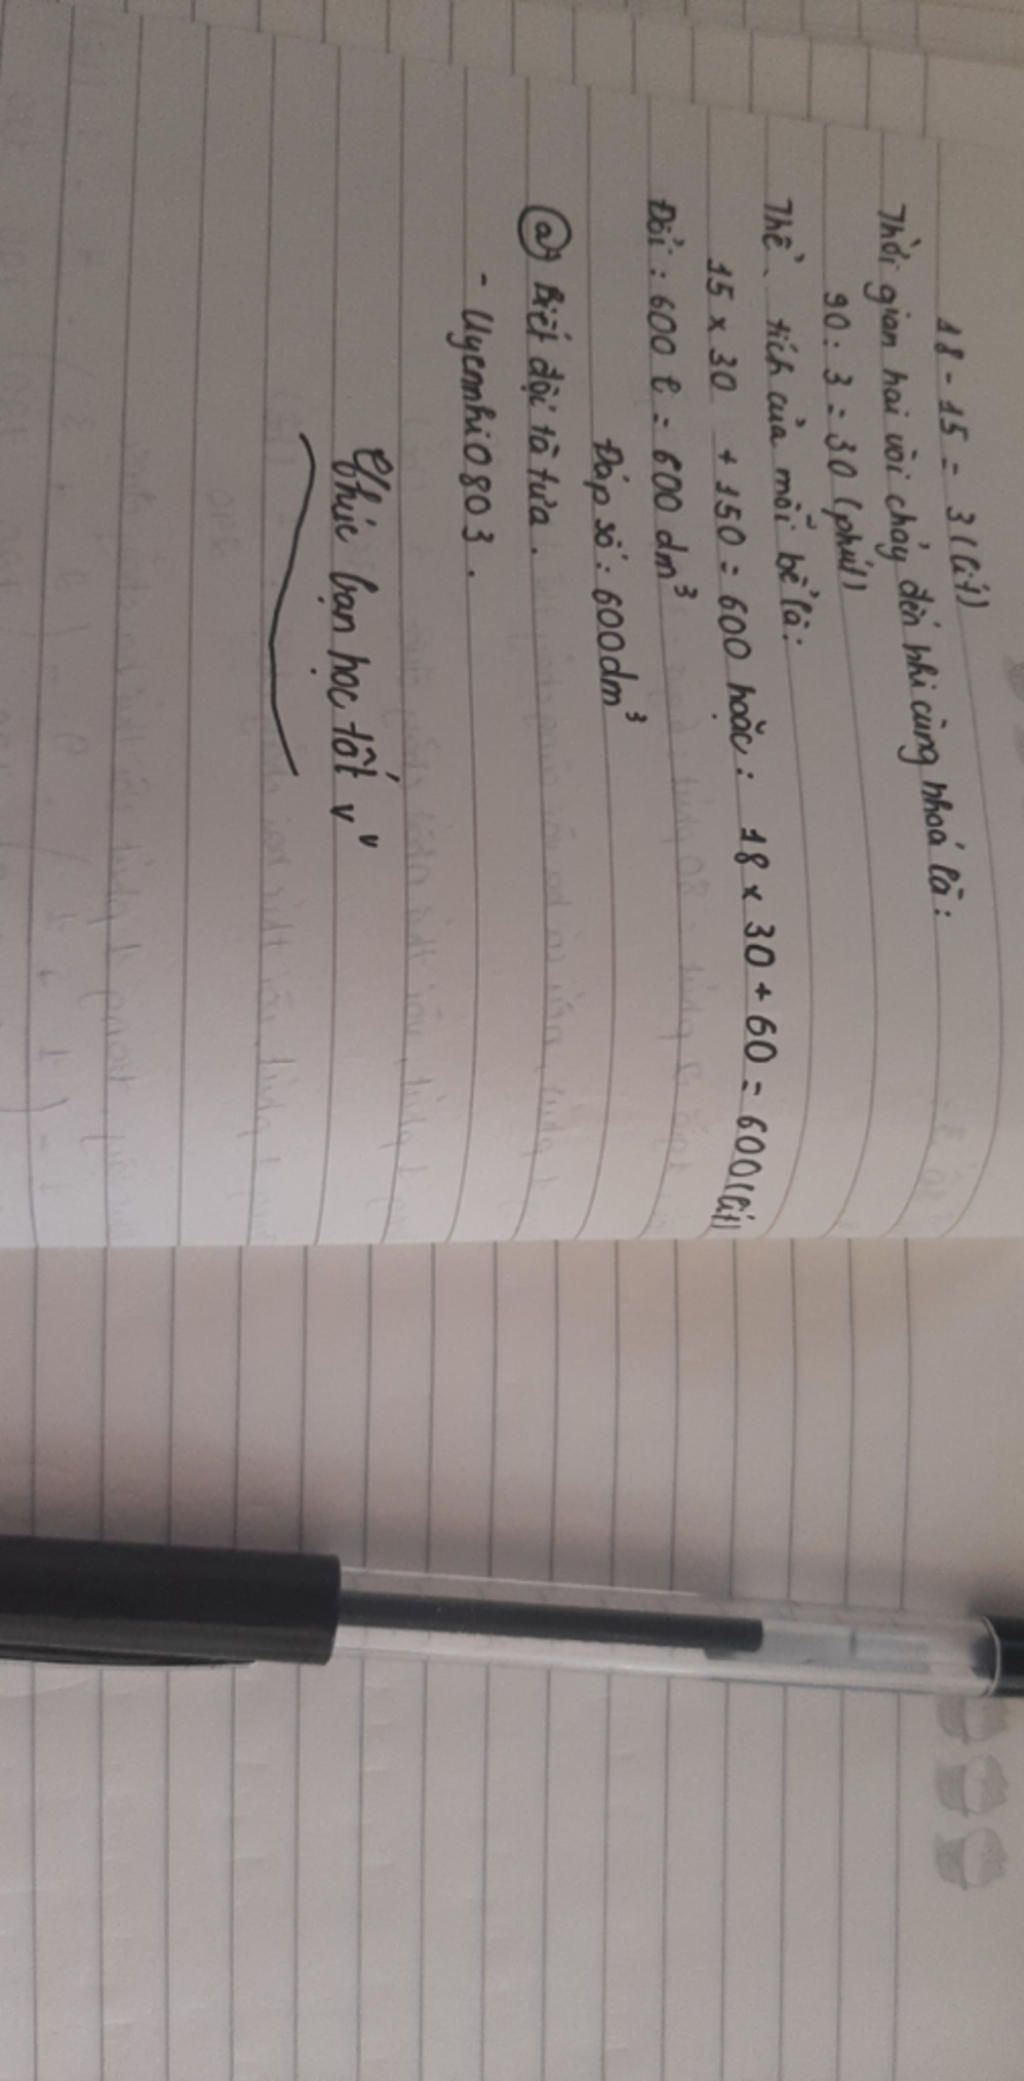 18 - 15 = 3 (lít)
Thời gian hai vòi chảy đến khi cùng khoá là:
90 : 3 = 30 (phút)
Thể tích của mỗi bể là:
15 x 30 + 150 = 600 hoặc: 18 x 30 + 60 = 600 (lít)
Đổi: 600 l = 600 dm³
Đáp số: 600dm³
@ Biệt đội tà tưa.
- Uyennhi0803.
Chúc bạn học tốt